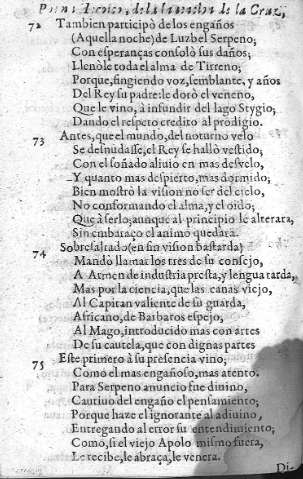 Poema Heroico, de la Inuencion de la Cruz,
72 Tambien participò de los engaños
(Aquella noche) de Luzbel Serpeno;
Con esperanças consolò sus daños;
Llenòle toda el alma de Tirreno;
Porque, fingiendo voz, semblante, y años
Del Rey su padre: le dorò el veneno,
Que le vino, à infundir del lago Stygio;
Dando el respeto credito al prodigio.
73 Antes, que el mundo, del noturno velo
Se desnudasse, el Rey se hallò vestido;
Con el soñado aliuio en mas desvelo,
Y quanto mas despierto, mas dormido;
Bien mostrò la vision no ser del cielo,
No conformando el alma, y el oìdo;
Que à serlo; aunque al principio le alterara,
Sin embaraço el animo quedara.
74 Sobresaltado (en fin vision bastarda)
Mandò llamar los tres de su consejo,
A Armen de industria presta, y lengua tarda,
Mas por la ciencia, que las canas viejo,
Al Capitan valiente de su guarda,
Africano, de Barbaros espejo,
Al Mago, introducido mas con artes
De su cautela, que con dignas partes
75 Este primero à su presencia vino,
Como el mas engañoso, mas atento.
Para Serpeno anuncio fue diuino,
Cautiuo del engaño el pensamiento;
Porque haze el ignorante al adiuino,
Entregando al error su entendimiento;
Como, si el viejo Apolo mismo fuera,
Le recibe, le abraça, le venera.
Di-